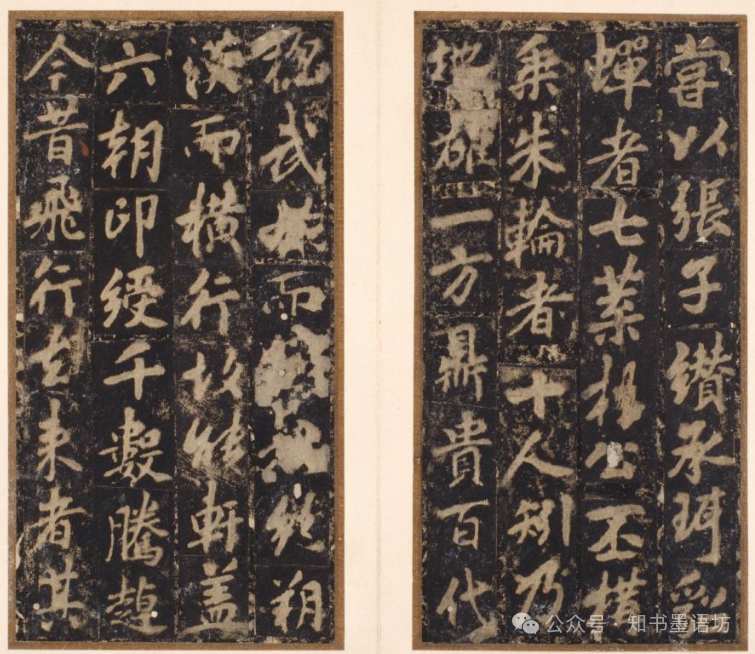 嘗以張子纘承珥
蟬者七葉楊公丕構
乘朱輪者十人矧乃
地雄一方鼎貴百代
武 而 朔
漢而橫行故能軒蓋
六朝印綬千數騰趠
今昔飛行去來者其
公众号·知书墨语坊